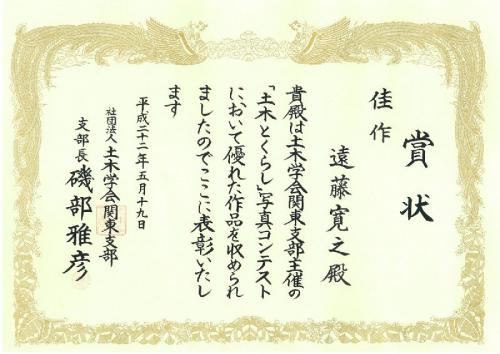 賞状
佳作
遠藤寛之殿
貴殿は土木学会関東支部主催の
「土木とくらし」写真コンテスト
において優れた作品を収められ
ましたのでここに表彰いたし
ます
平成二十二年五月十九日
社団法人土木学会関東支部
支部長 磯部雅彦